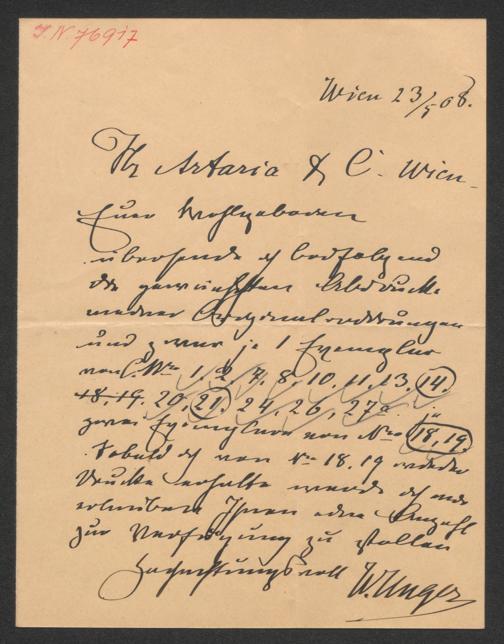 I.N. 76917
Wien 23/5 08.
Artaria & C. Wien
Euer Wohlgeboren
übersende ich beifolgend
die gewünschten Abdrucke
meiner Originalradirungen
und zwar je 1 Exemplar
von No 1, 2, 4, 8, 10, 11, 13, 14.
18, 19. 20, 21. 24, 26, 27a. je
zwei Exemplare von No 18, 19.
Sobald ich von No 18, 19 wieder
Drucke erhalte werde ich mir
erlauben Ihnen eine Anzahl
zur Verfügung zu stellen
Hochachtungsvoll W. Unger